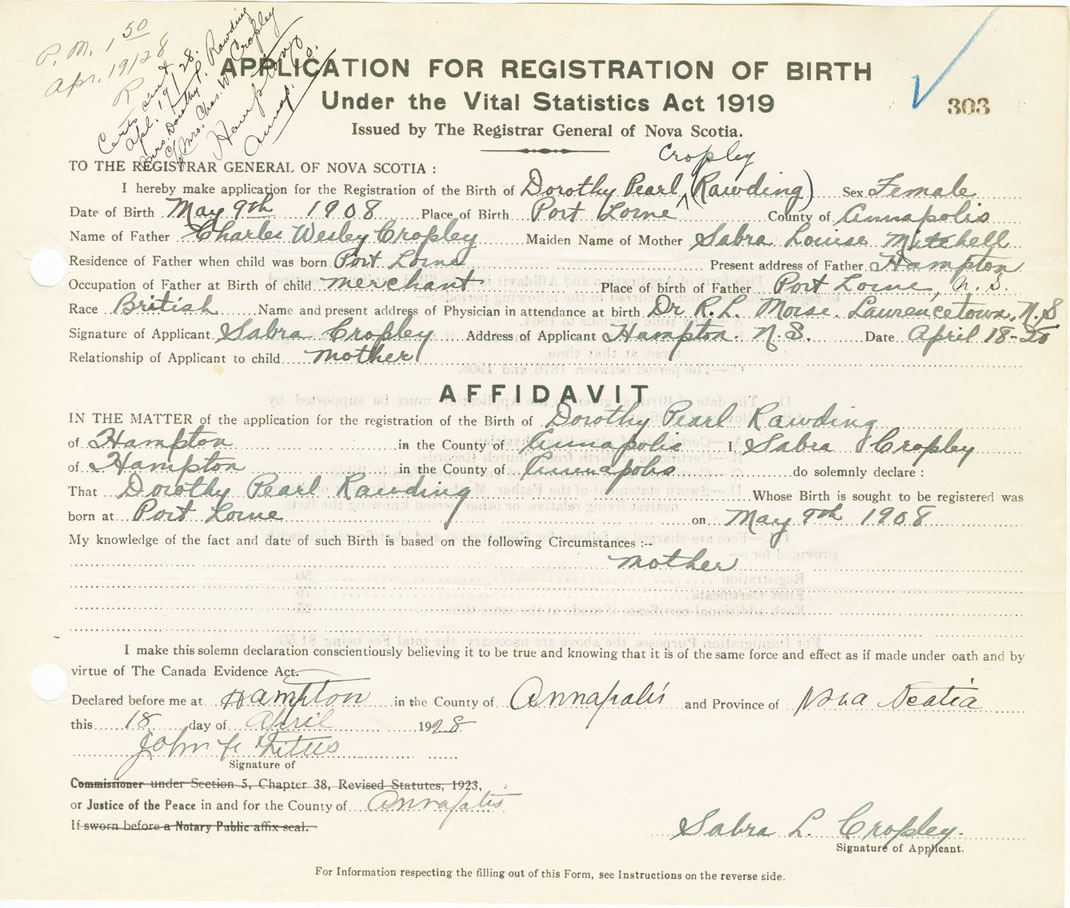 P. M. 1 50
Apr. 19/28
R
Certs sent
Apl. 19/28.
Mrs. Dorothy P. Rawding
c/o Mrs. Chas. W. Cropley
Hampton
Annap. Co.
APPLICATION FOR REGISTRATION OF BIRTH
303
Under the Vital Statistics Act 1919
Issued by The Registrar General of Nova Scotia.
TO THE REGISTRAR GENERAL OF NOVA SCOTIA :
Cropley
I hereby make application for the Registration of the Birth of Dorothy Pearl (Rawding) Sex Female
Date of Birth May 9th 1908 Place of Birth Port Lorne County of Annapolis
Name of Father Charles Wesley Cropley Maiden Name of Mother Sabra Louise Mitchell
Residence of Father when child was born Port Lorne Present address of Father Hampton
Occupation of Father at Birth of child merchant Place of birth of Father Port Lorne, N.S.
Race British Name and present address of Physician in attendance at birth Dr R. L. Morse. Laurencetown. N.S
Signature of Applicant Sabra Cropley Address of Applicant Hampton. N.S. Date April 18-
Relationship of Applicant to child mother
AFFIDAVIT
IN THE MATTER of the application for the registration of the Birth of Dorothy Pearl Rawding
of Hampton in the County of Annapolis I, Sabra Cropley
of Hampton in the County of Annapolis do solemnly declare :
That Dorothy Pearl Rawding Whose Birth is sought to be registered was
born at Port Lorne on May 9th 1908
My knowledge of the fact and date of such Birth is based on the following Circumstances :--
mother
I make this solemn declaration conscientiously believing it to be true and knowing that it is of the same force and effect as if made under oath and by
virtue of The Canada Evidence Act.
Declared before me at Hampton in the County of Annapolis and Province of Nova Scotia
this 18 day of April 1928
John Titus
Signature of
Commissioner under Section 5, Chapter 38, Revised Statutes, 1923,
or Justice of the Peace in and for the County of Annapolis
If sworn before a Notary Public affix seal.
Sabra L. Cropley.
Signature of Applicant.
For Information respecting the filling out of this Form, see Instructions on the reverse side.